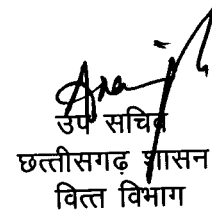 उप सचिव
छत्तीसगढ़ शासन
वित्त विभाग